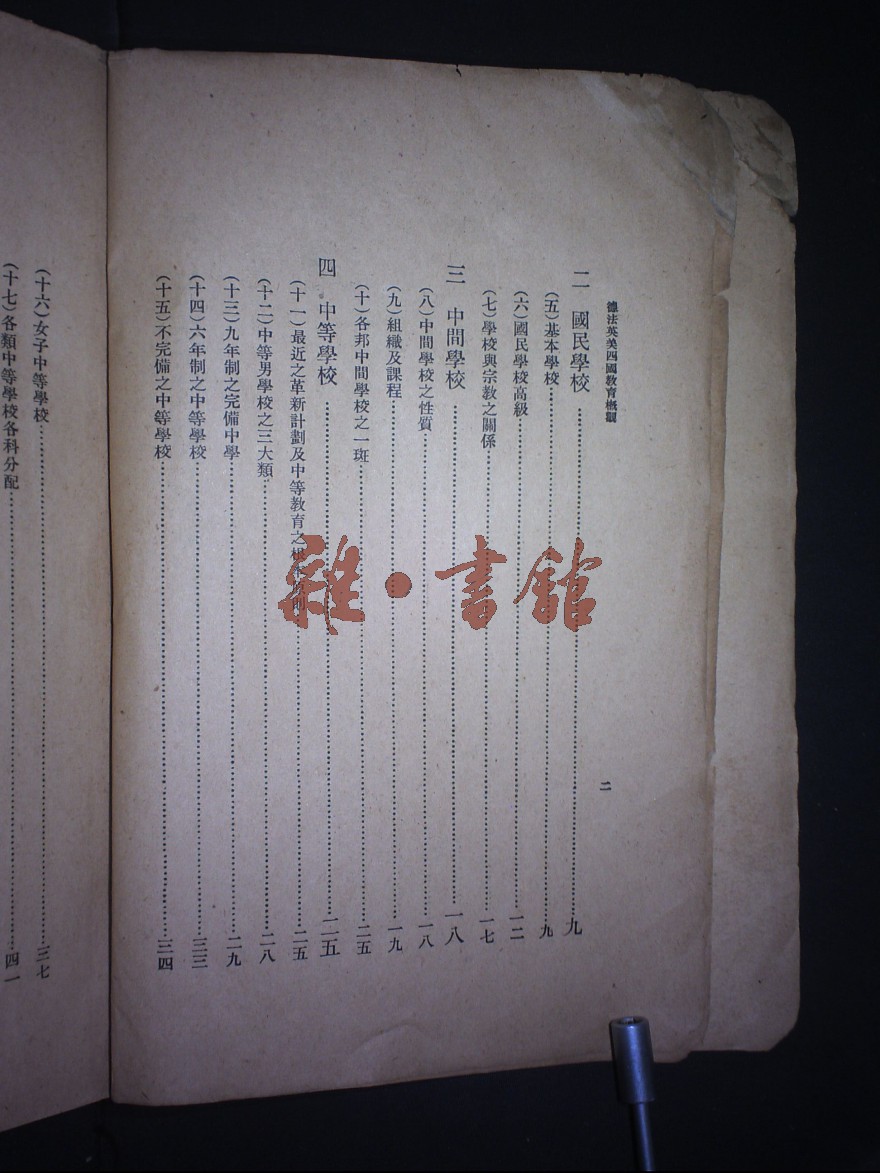 德法英美四國教育概觀
二
二 國民學校……九
(五)基本學校……九
(六)國民學校高級……一二
(七)學校與宗教之關係……一七
三 中間學校……一八
(八)中間學校之性質……一八
(九)組織及課程……一九
(十)各邦中間學校之一斑……二五
四 中等學校……二五
(十一)最近之革新計劃及中等教育之根……二五
(十二)中等男學校之三大類……二八
(十三)九年制之完備中學……二九
(十四)六年制之中等學校……三三
(十五)不完備之中等學校……三四
(十六)女子中等學校……三七
(十七)各類中等學校各科分配……四一
雜·書館